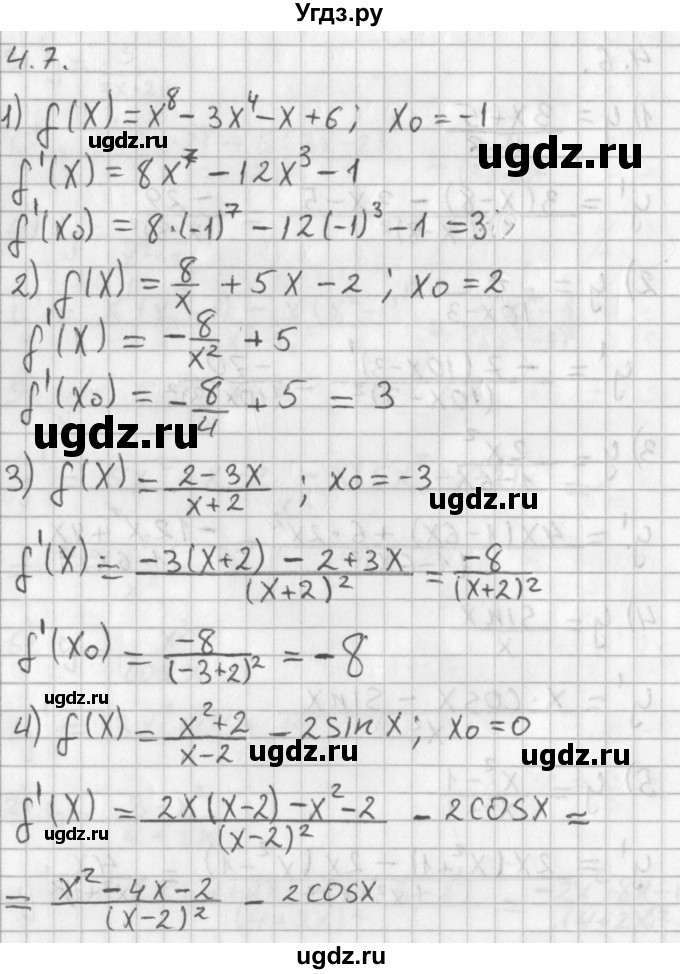 Угдз.ру
4.7.
1) f(x) = x⁸ - 3x⁴ - x + 6; x₀ = -1
ugdz.ru
ugdz.ru
f'(x) = 8x⁷ - 12x³ - 1
f'(x₀) = 8·(-1)⁷ - 12(-1)³ - 1 = 3;
2) f(x) = 8/x + 5x - 2; x₀ = 2
f'(x) = -8/x² + 5
f'(x₀) = -8/4 + 5 = 3
ugdz.ru
3) f(x) = (2-3x)/(x+2); x₀ = -3
ugdz.ru
f'(x) = (-3(x+2) - 2+3x)/(x+2)² = -8/(x+2)²
f'(x₀) = -8/(-3+2)² = -8
ugdz.ru
4) f(x) = (x²+2)/(x-2) - 2sinx; x₀ = 0
ugdz.ru
ugdz.ru
f'(x) = (2x(x-2) - x² - 2)/(x-2)² - 2cosx =
ugdz.ru
= (x² - 4x - 2)/(x-2)² - 2cosx
ugdz.ru